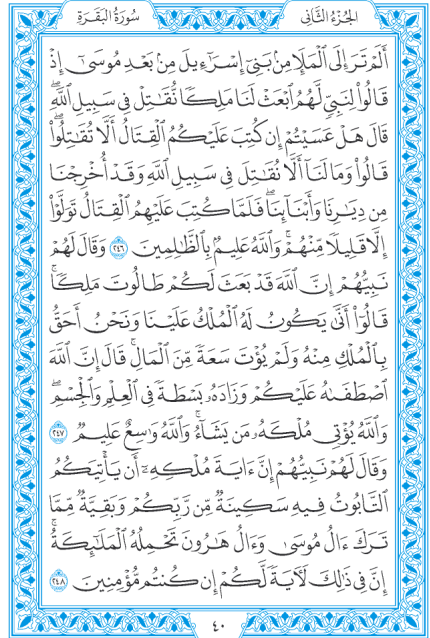 الجُزْءُ الثَّانِي
سُورَةُ البَقَرَةِ
أَلَمْ تَرَ إِلَى ٱلْمَلَإِ مِنۢ بَنِىٓ إِسْرَٰٓءِيلَ مِنۢ بَعْدِ مُوسَىٰٓ إِذْ
قَالُوا۟ لِنَبِىٍّ لَّهُمُ ٱبْعَثْ لَنَا مَلِكًا نُّقَٰتِلْ فِى سَبِيلِ ٱللَّهِۖ
قَالَ هَلْ عَسَيْتُمْ إِن كُتِبَ عَلَيْكُمُ ٱلْقِتَالُ أَلَّا تُقَٰتِلُوا۟ۖ
قَالُوا۟ وَمَا لَنَآ أَلَّا نُقَٰتِلَ فِى سَبِيلِ ٱللَّهِ وَقَدْ أُخْرِجْنَا
مِن دِيَٰرِنَا وَأَبْنَآئِنَاۖ فَلَمَّا كُتِبَ عَلَيْهِمُ ٱلْقِتَالُ تَوَلَّوْا۟
إِلَّا قَلِيلًا مِّنْهُمْۚ وَٱللَّهُ عَلِيمٌۢ بِٱلظَّٰلِمِينَ ٢٤٦ وَقَالَ لَهُمْ
نَبِيُّهُمْ إِنَّ ٱللَّهَ قَدْ بَعَثَ لَكُمْ طَالُوتَ مَلِكًاۚ
قَالُوٓا۟ أَنَّىٰ يَكُونُ لَهُ ٱلْمُلْكُ عَلَيْنَا وَنَحْنُ أَحَقُّ
بِٱلْمُلْكِ مِنْهُ وَلَمْ يُؤْتَ سَعَةً مِّنَ ٱلْمَالِۚ قَالَ إِنَّ ٱللَّهَ
ٱصْطَفَىٰهُ عَلَيْكُمْ وَزَادَهُۥ بَسْطَةً فِى ٱلْعِلْمِ وَٱلْجِسْمِۖ
وَٱللَّهُ يُؤْتِى مُلْكَهُۥ مَن يَشَآءُۚ وَٱللَّهُ وَٰسِعٌ عَلِيمٌ ٢٤٧
وَقَالَ لَهُمْ نَبِيُّهُمْ إِنَّ ءَايَةَ مُلْكِهِۦٓ أَن يَأْتِيَكُمُ
ٱلتَّابُوتُ فِيهِ سَكِينَةٌ مِّن رَّبِّكُمْ وَبَقِيَّةٌ مِّمَّا
تَرَكَ ءَالُ مُوسَىٰ وَءَالُ هَٰرُونَ تَحْمِلُهُ ٱلْمَلَٰٓئِكَةُۚ
إِنَّ فِى ذَٰلِكَ لَءَايَةً لَّكُمْ إِن كُنتُم مُّؤْمِنِينَ ٢٤٨
٤٠